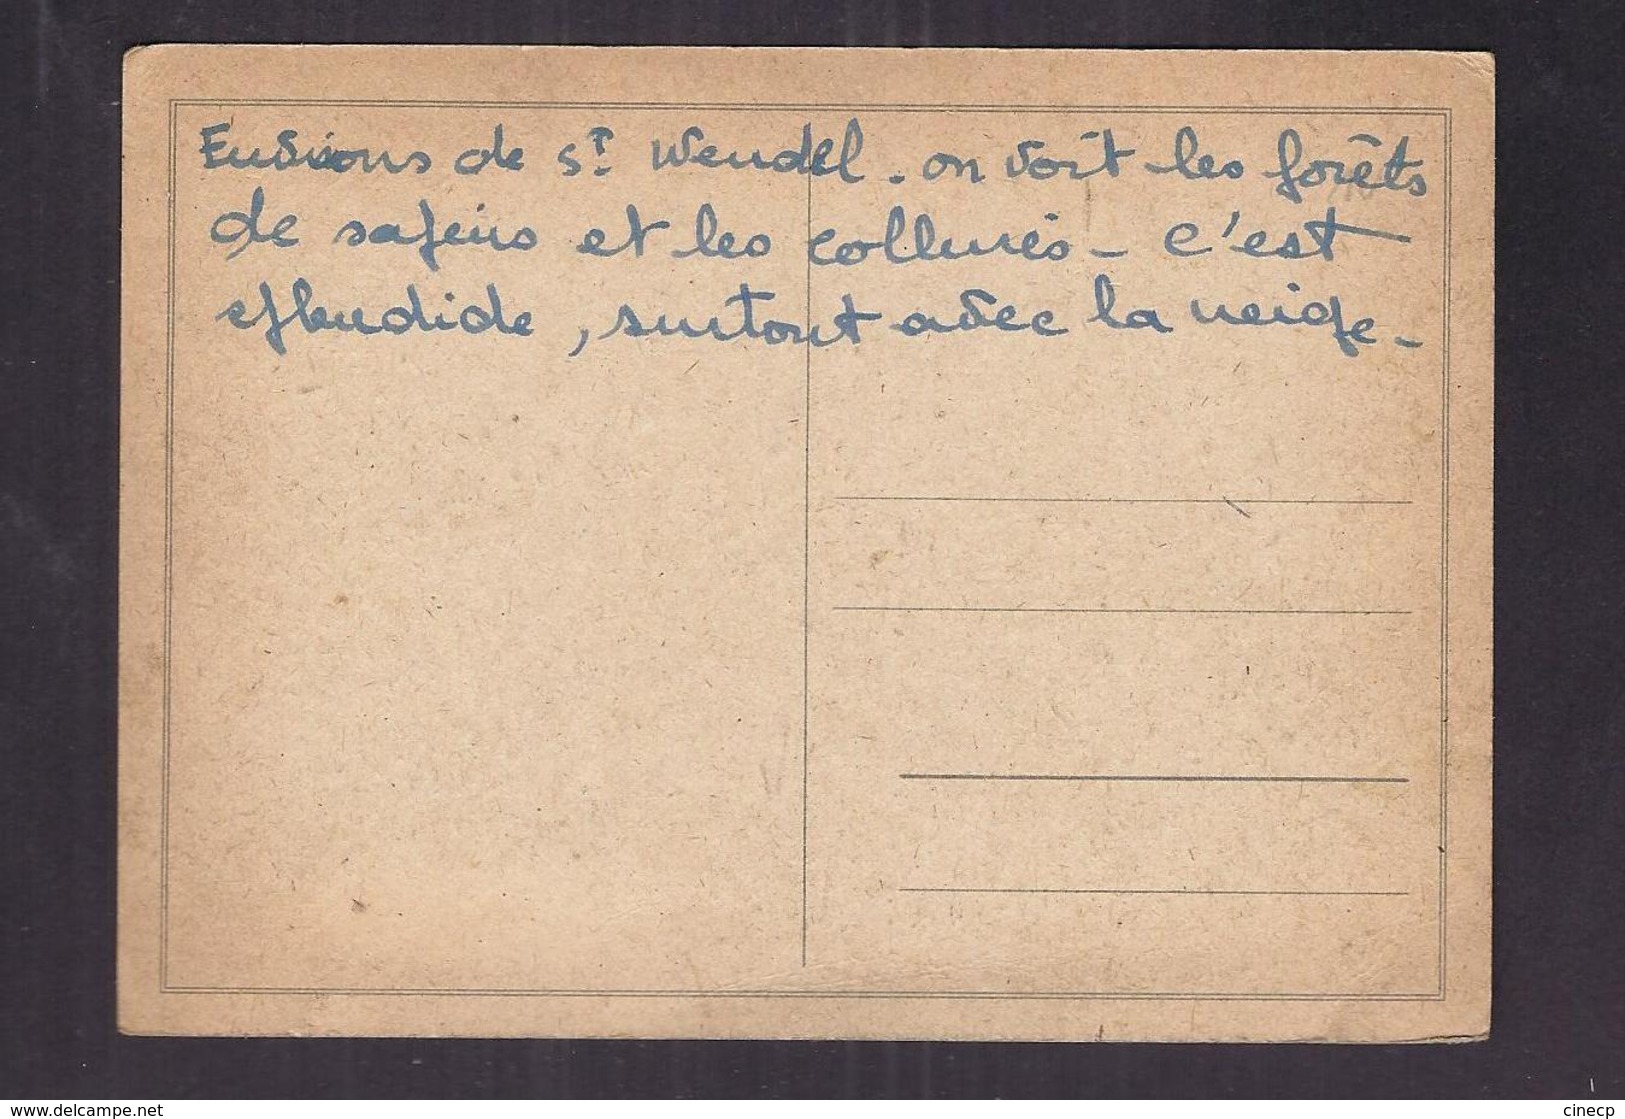 Environs de St Wendel. on voit les forêts
de sapins et les collines - c'est
splendide, surtout avec la neige -
www.delcampe.net
cinecp